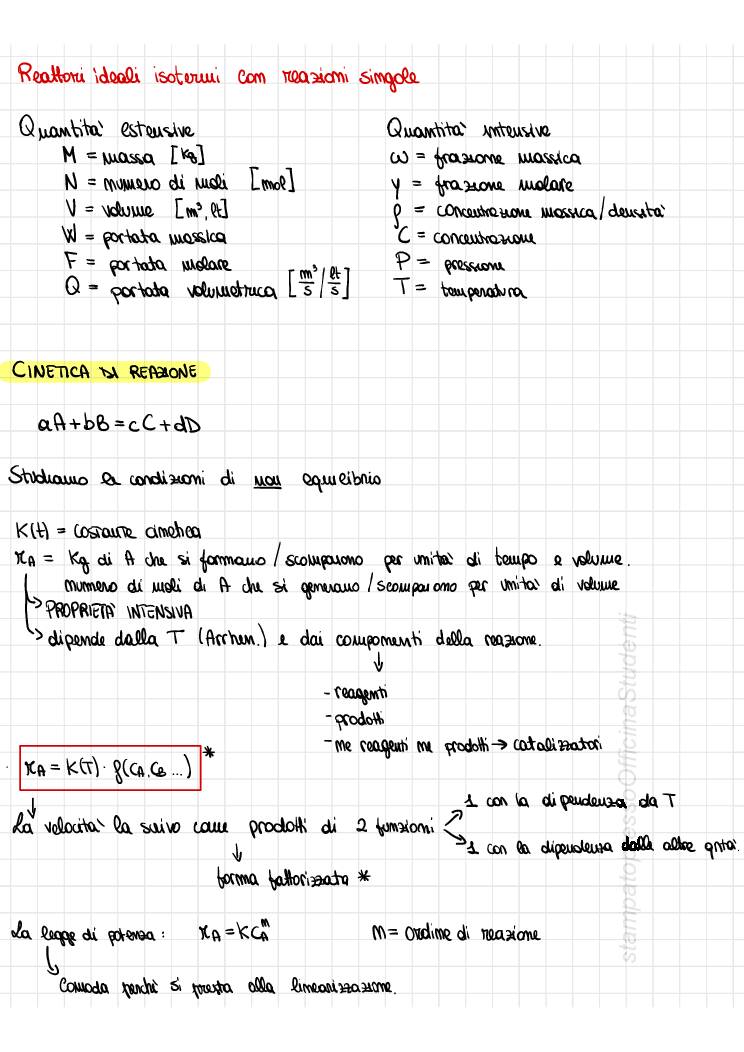 Reattori ideali isotermi con reazioni singole
Quantità estensive
M = massa [Kg]
N = numero di moli [mol]
V = volume [m³, lt]
W = portata massica
F = portata molare
Q = portata volumetrica [m³/s / lt/s]
Quantità intensive
ω = frazione massica
y = frazione molare
ρ = concentrazione massica/densità
C = concentrazione
P = pressione
T = temperatura
CINETICA DI REAZIONE
aA+bB=cC+dD
Studiamo le condizioni di non equilibrio
K(t) = costante cinetica
rA = Kg di A che si formano / scompaiono per unità di tempo e volume.
numero di moli di A che si generano / scompaiono per unità di volume
↳ PROPRIETÀ INTENSIVA
↳ dipende dalla T (Arrhen.) e dai componenti della reazione.
↓
- reagenti
- prodotti
- ne reagenti ne prodotti → catalizzatori
rA = K(T) · f(CA, CB ...) *
↓
La velocità la scrivo come prodotti di 2 funzioni
1 con la dipendenza da T
1 con la dipendenza dalle altre qntà.
↓
forma fattorizzata *
La legge di potenza: rA = KCAⁿ n = Ordine di reazione
↳ Comoda perché si presta alla linearizzazione.
stampatopressoOfficinaStudenti